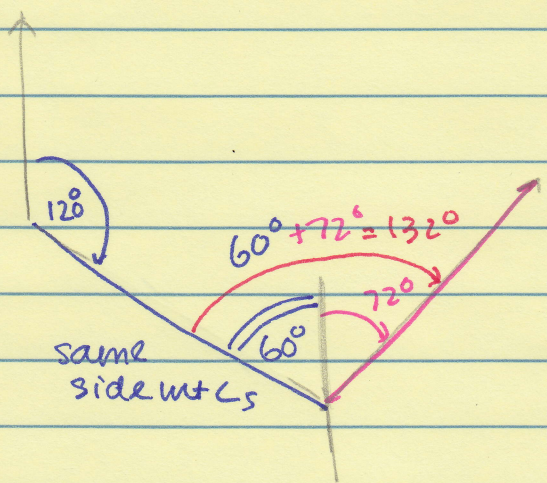 120°
60° + 72° = 132°
72°
60°
same
side int ∠s